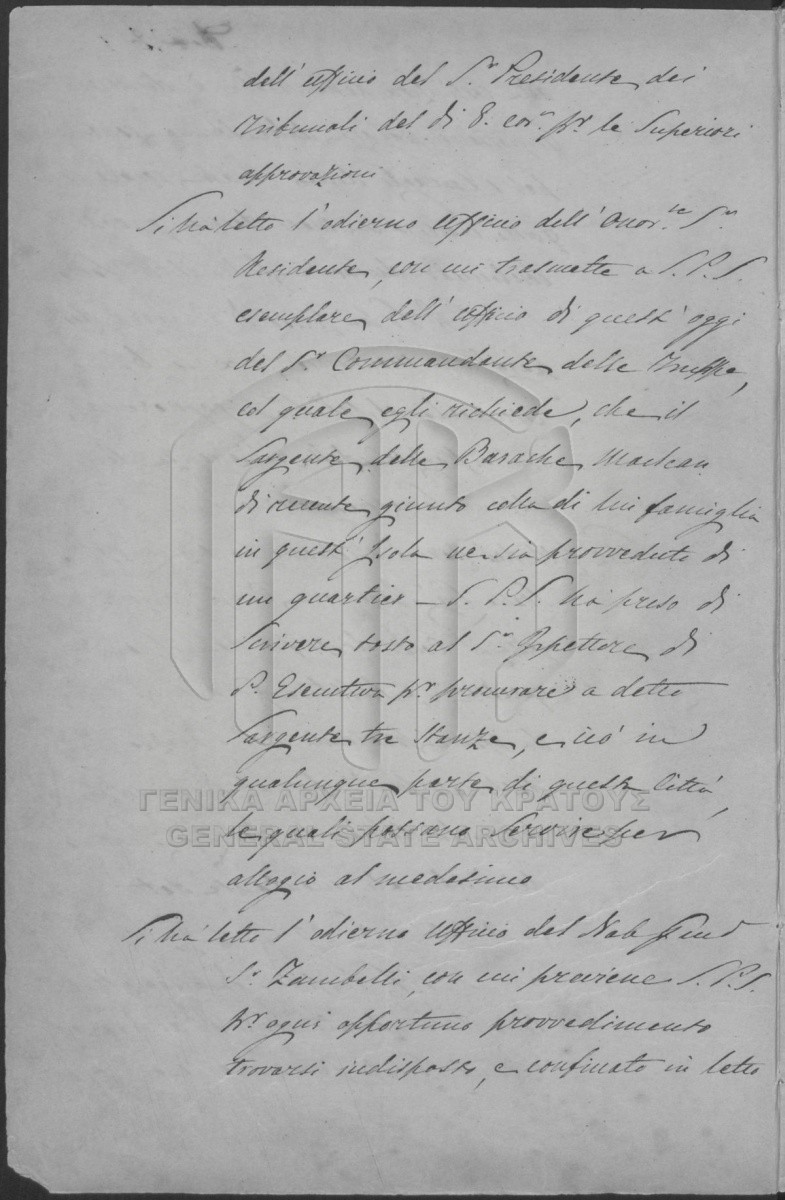 dell' ufficio del S.r Presidente dei
Tribunali del di 8. cor.e p.r le Superiori
approvazioni
Si hà letto l' odierno ufficio dell' Onor.le S.r
Residente, con cui trasmette a S.P.S.
esemplare dell' ufficio di quest' oggi
del S.r Commandante delle Truppe,
col quale egli richiede, che il
Sargente delle Barache
di recente giunto colla di lui famiglia
in quest' Isola ne sia provveduto di
un quartier – S.P.S. hà preso di
Scrivere tosto al S.r Ispettore di
P. Esecutiva p.r procurare a detto
Sargente tre Stanze, e ciò in
qualunque parte di questa Città,
le quali possano Servire per
allogio al medesimo
Si hà letto l' odierno ufficio del Nob
S.r Zambelli, con cui previene S.P.S.
p.r ogni opportuno provvedimento
trovarsi indisposto, e confinato in letto
ΓΕΝΙΚΑ ΑΡΧΕΙΑ ΤΟΥ ΚΡΑΤΟΥΣ
GENERAL STATE ARCHIVES